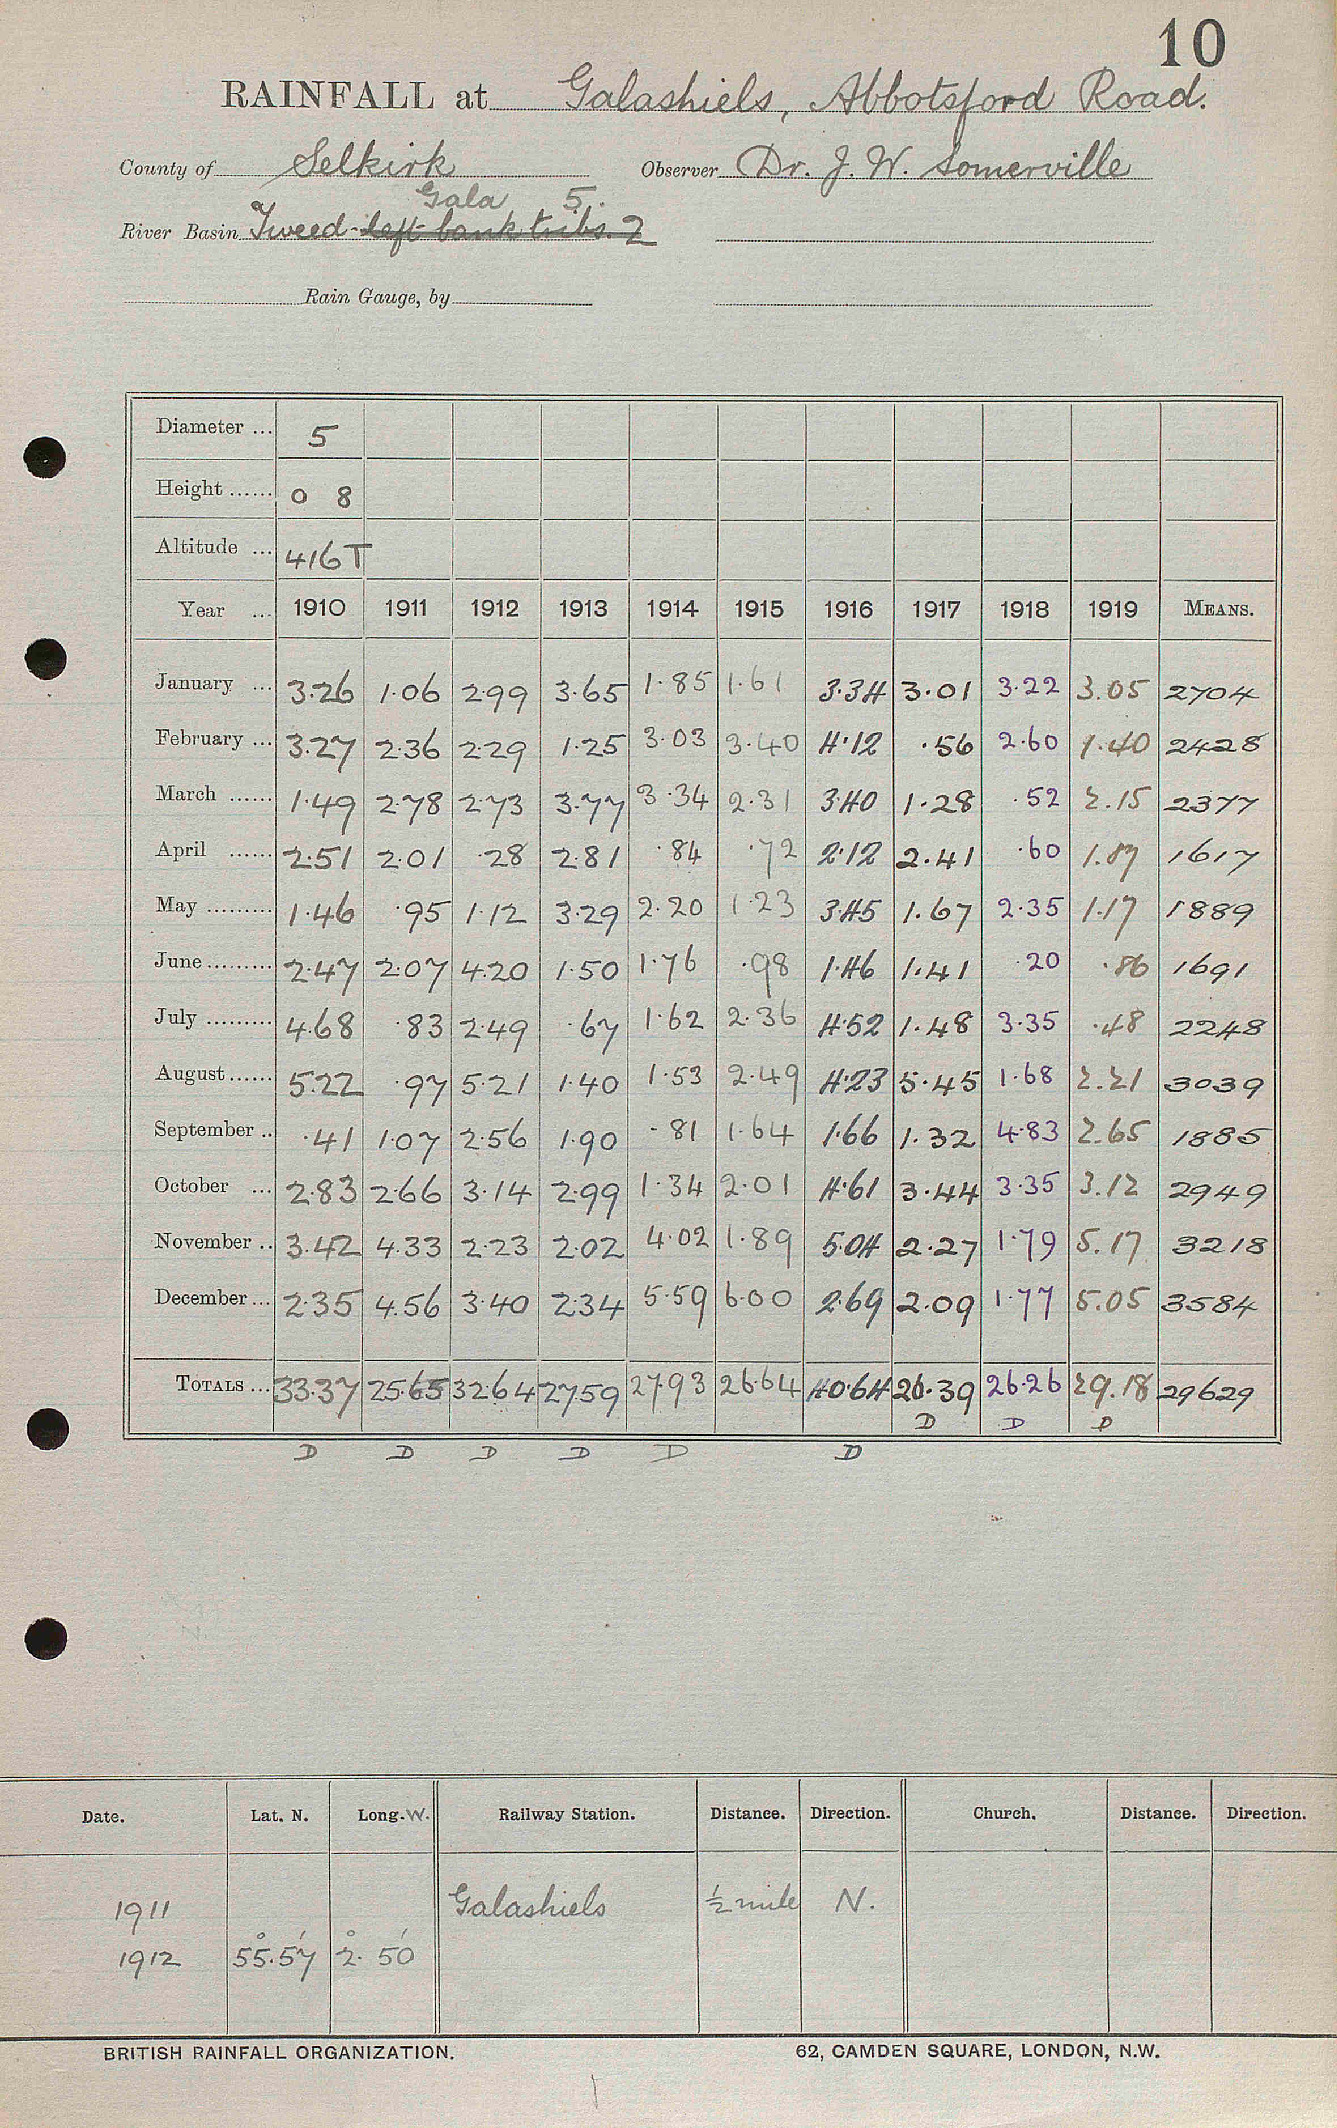 10
RAINFALL at Galashiels, Abbotsford Road.
County of Selkirk Observer Dr. J. W. Somerville
Gala 5.
River Basin Tweed-left bank tribs. 2
Rain Gauge, by
Diameter ... 5
Height ...... 0 8
Altitude ... 416T
Year ... 1910 1911 1912 1913 1914 1915 1916 1917 1918 1919 MEANS.
January ... 3.26 1.06 2.99 3.65 1.85 1.61 3.34 3.01 3.22 3.05 2704
February ... 3.27 2.36 2.29 1.25 3.03 3.40 4.12 .56 2.60 1.40 2428
March ...... 1.49 2.78 2.73 3.77 3.34 2.31 3.40 1.28 .52 2.15 2377
April ...... 2.51 2.01 .28 2.81 .84 .72 2.12 2.41 .60 1.87 1617
May ......... 1.46 .95 1.12 3.29 2.20 1.23 3.45 1.67 2.35 1.17 1889
June ......... 2.47 2.07 4.20 1.50 1.76 .98 1.46 1.41 .20 .86 1691
July ......... 4.68 .83 2.49 .67 1.62 2.36 4.52 1.48 3.35 .48 2248
August ...... 5.22 .97 5.21 1.40 1.53 2.49 4.23 5.45 1.68 2.21 3039
September .. .41 1.07 2.56 1.90 .81 1.64 1.66 1.32 4.83 2.65 1885
October ... 2.83 2.66 3.14 2.99 1.34 2.01 4.61 3.44 3.35 3.12 2949
November .. 3.42 4.33 2.23 2.02 4.02 1.89 5.04 2.27 1.79 5.17 3218
December ... 2.35 4.56 3.40 2.34 5.59 6.00 2.69 2.09 1.77 5.05 3584
TOTALS ... 33.37 25.65 32.64 27.59 27.93 26.64 40.64 26.39 26.26 29.18 29629
D D D
D D D D D D
Date. Lat. N. Long. W. Railway Station. Distance. Direction. Church. Distance. Direction.
1911 Galashiels ½ mile N.
1912 55°.57' 2°. 50'
BRITISH RAINFALL ORGANIZATION. 62, CAMDEN SQUARE, LONDON, N.W.